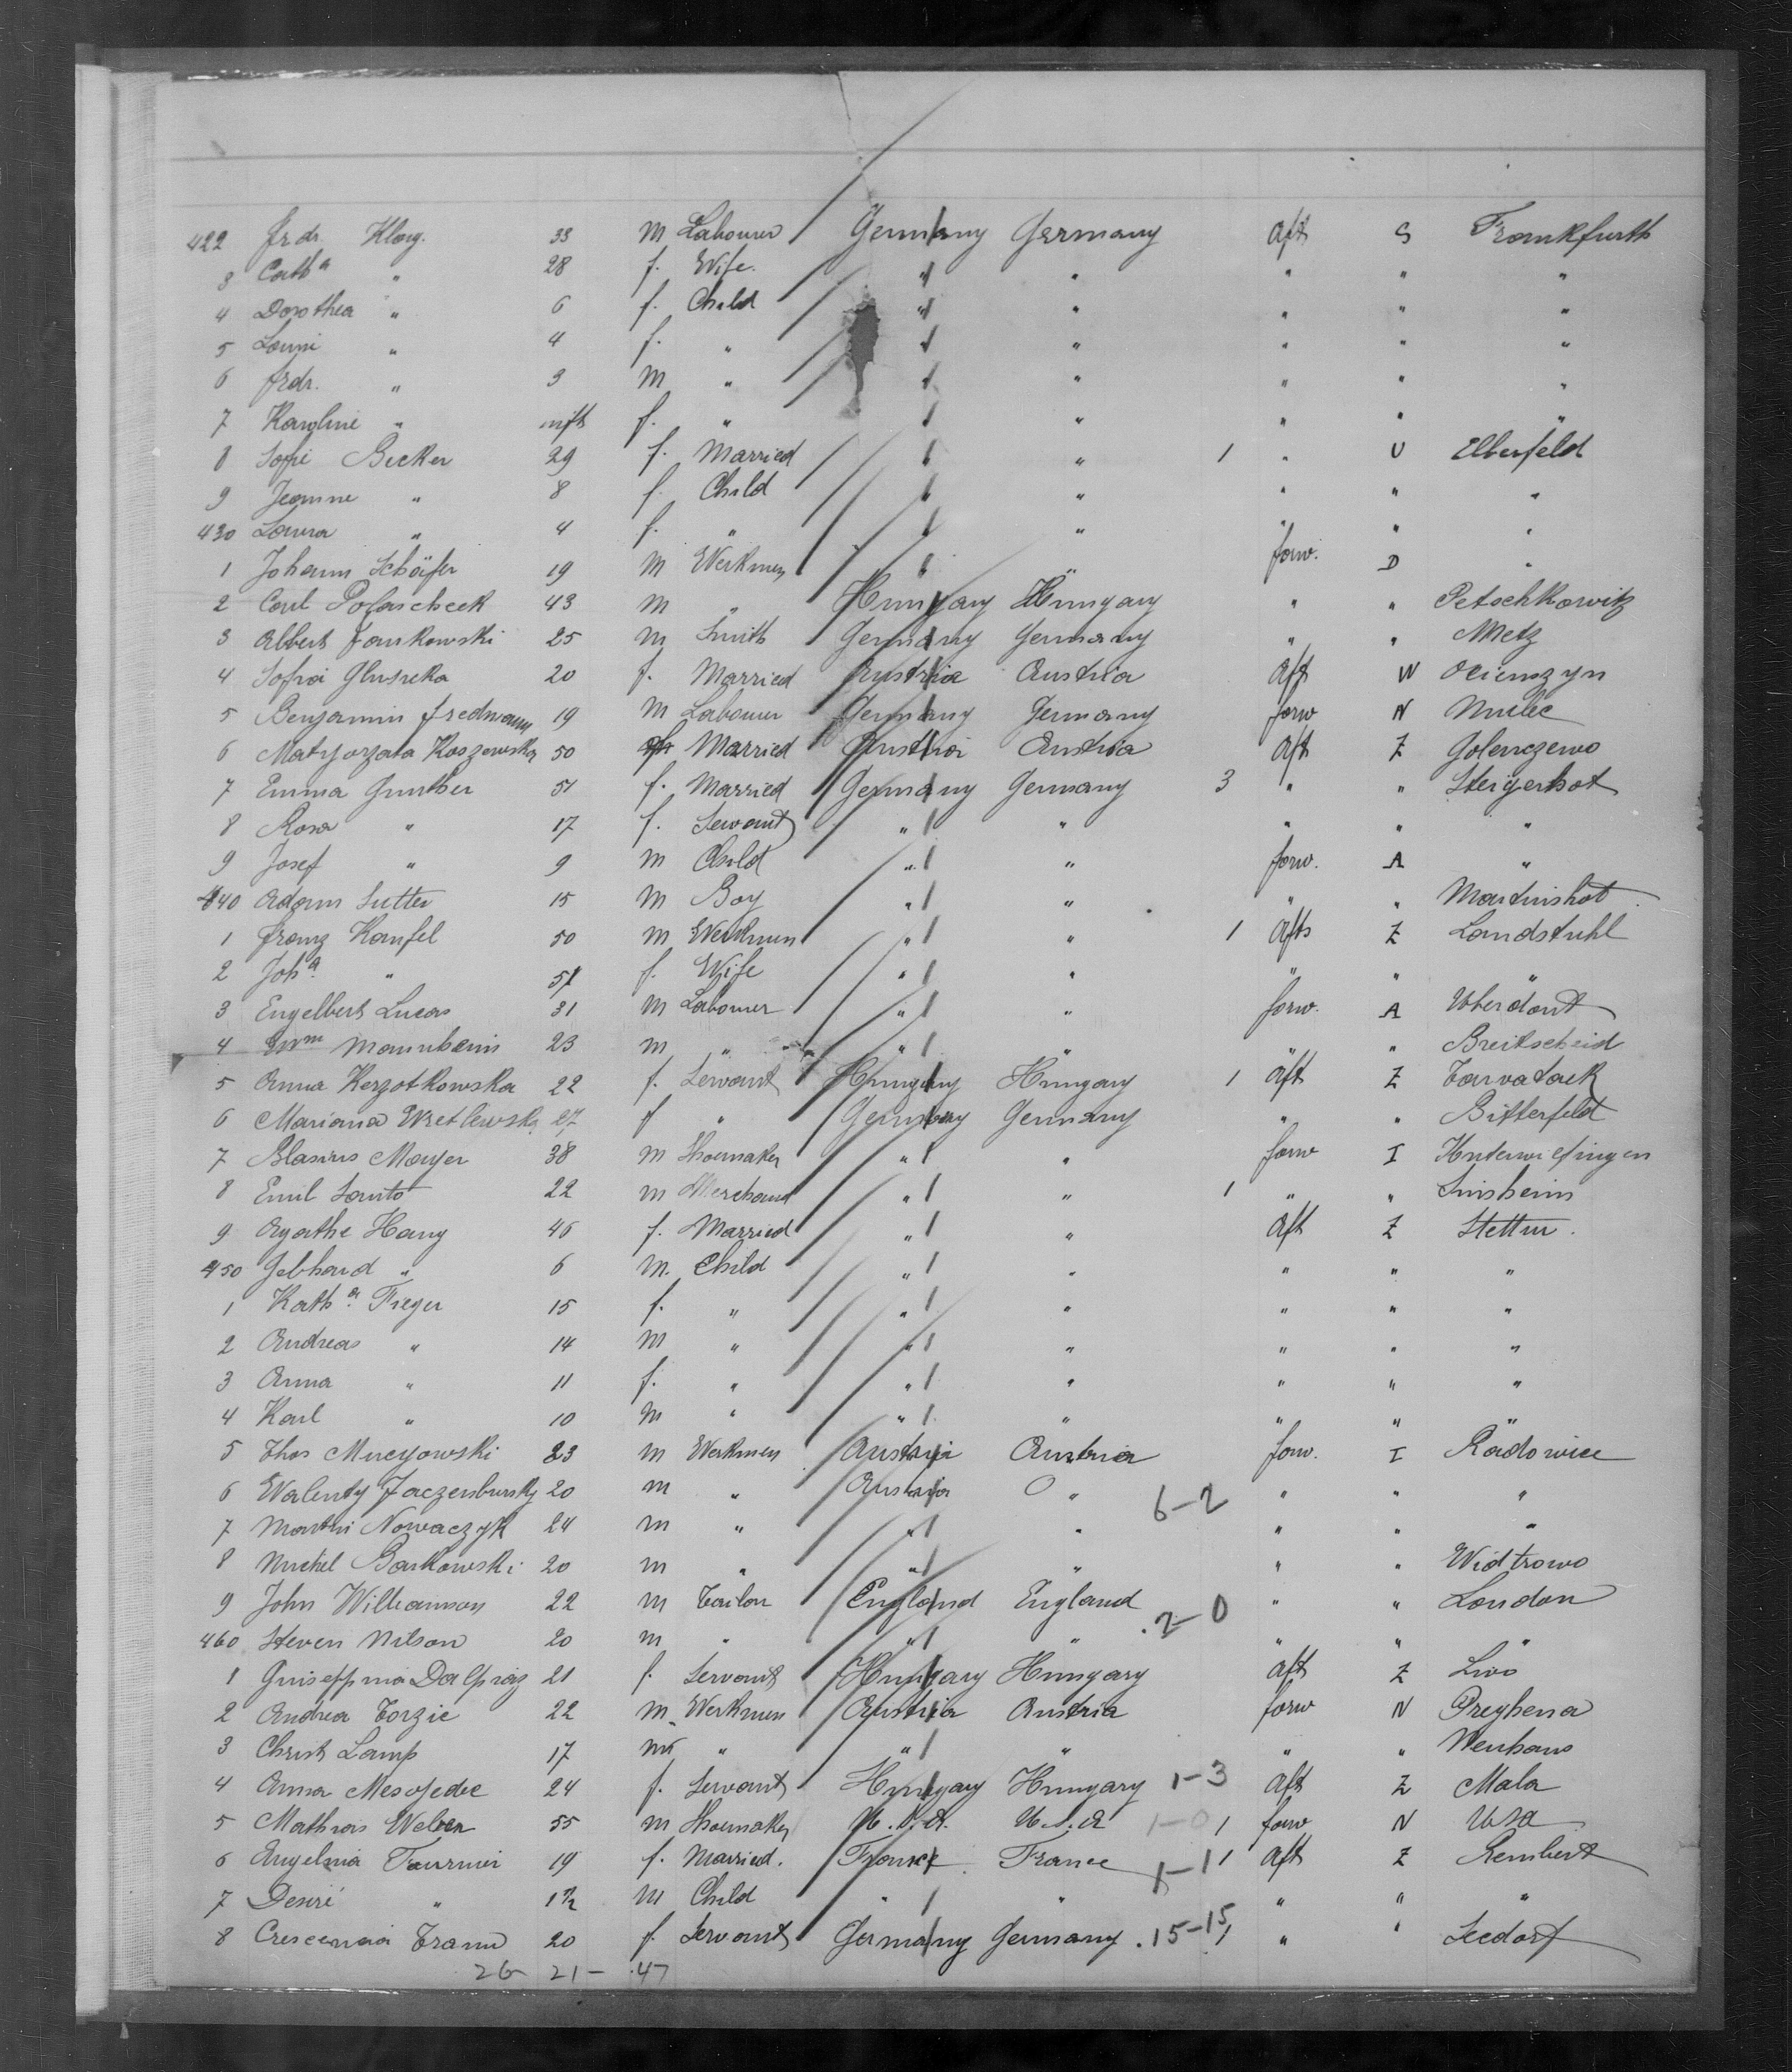 422 Frdr. Klug. 33 m Labourer Germany Germany Aft S Frankfurth
3 Cath a " 28 f. Wife. " " " " "
4 Dorothea " 6 f. Child " " " " "
5 " 4 f. " " " " " "
6 Frdr. " 3 m " " " " " "
7 Karoline " inft f. " " " " " "
8 Sofie Becker 29 f. Married " " 1 " U Elberfeld
9 Jeanne " 8 f. Child " " " " "
430 Laura " 4 f. " " " " " "
1 Johann Schäfer 19 m Werkmen " " forw. D "
2 Carl Polascheck 43 m " Hungary Hungary " " Petschkowitz
3 Albert Jankowski 25 m Smith Germany Germany " " Metz
4 Sofia Gluszeka 20 f. Married Austria Austria Aft W
5 Benjamin 19 m Labourer Germany Germany forw N
6 Matyorzata Koszewska 50 f Married Austria Austria Aft Z Golenczewo
7 Emma Gunther 51 f. Married Germany Germany 3 " " Steigerhot
8 Rosa " 17 f. Servant " " " " "
9 Josef " 9 m Child " " forw. A "
440 Adam Sutter 15 m Boy " " " " Martinshot
1 Franz Kanfel 50 m Werkmen " " 1 Aft Z Landstuhl
2 Joh a. " 51 f. Wife " " " "  "
3 Engelbert Lucas 31 m Labourer " " forw. A
4 Wm Mannheim 23 m " " " " " Breitscheid
5 Anna Kerzotkowska 22 f. Servant Hungary Hungary 1 Aft Z
6 Mariana Wretlewska 27 f " Germany Germany " " Bitterfeld
7 Blasius Mayer 38 m Shoemaker " " forw I
8 Emil Santo 22 m Merchant " " 1 " " Sinsheim
9 Agathe Hang 46 f. Married " " Aft Z Stettin.
450 Gebhard " 6 m. Child " " " " "
1 Kath a. Fieger 15 f. " " " " " "
2 Andreas " 14 m " " " " " "
3 Anna " 11 f. " " " " " "
4 Karl " 10 m " " " " " "
5 Thos Mucyowski 23 m Werkmen Austria Austria forw. I Radowice
6 Walenty 20 m " Austria " 6-2 " " "
7 Martin Nowaczyk 24 m " " " " " "
8 Michel Bartkowski 20 m " " " " " Widtrowo
9 John Williamson 22 m Tailor England England 2-0 " " London
460 Steven Nilson 20 m " " " " " "
1 Guiseppina Dalpiaz 21 f. Servant Hungary Hungary Aft Z Livo
2 Andrea Torzie 22 m Werkmen Austria Austria forw N Preghena
3 Christ Lamp 17 m " " " " " Neuhaus
4 Anna Mesojedec 24 f. Servant Hungary Hungary 1-3 Aft Z Mala
5 Mathias Weber 55 m Shoemaker U.S.A. U.S.A 1-0 1 forw N USA
6 Engelnia Tournier 19 f. Married. France France 1-1 1 Aft Z Rembert
7 Desiré " 1½ m Child " " " " "
8 Crescenzia 20 f. Servant Germany Germany. 15-15 1 " " Seedorf
26 21- 47